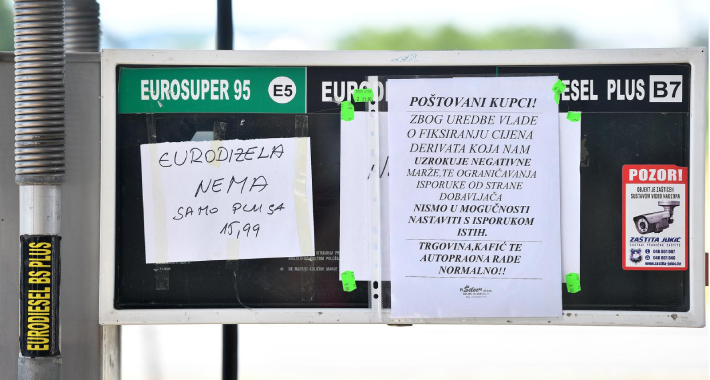 EUROSUPER 95 E5
ESEL PLUS B7
EURODIZELA
NEMA
SAMO PLUSA
15,99
POŠTOVANI KUPCI!
ZBOG UREDBE VLADE
O FIKSIRANJU CIJENA
DERIVATA KOJA NAM
UZROKUJE NEGATIVNE
MARŽE,TE OGRANIČAVANJA
ISPORUKE OD STRANE
DOBAVLJAČA
NISMO U MOGUĆNOSTI
NASTAVITI S ISPORUKOM
ISTIH.
TRGOVINA,KAFIĆ TE
AUTOPRAONA RADE
NORMALNO!!
POZOR!
OBJEKT JE ZAŠTIĆEN
SUSTAVOM VIDEO NADZORA
ZAŠTITA JUKIĆ
EURODIESEL BS PLUS